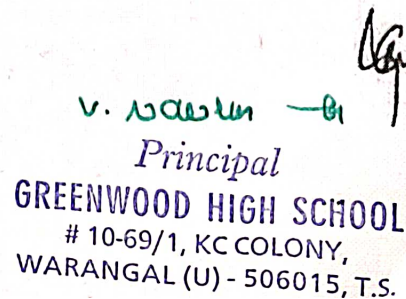 Principal
GREENWOOD HIGH SCHOOL
# 10-69/1, KC COLONY,
WARANGAL (U) - 506015, T.S.